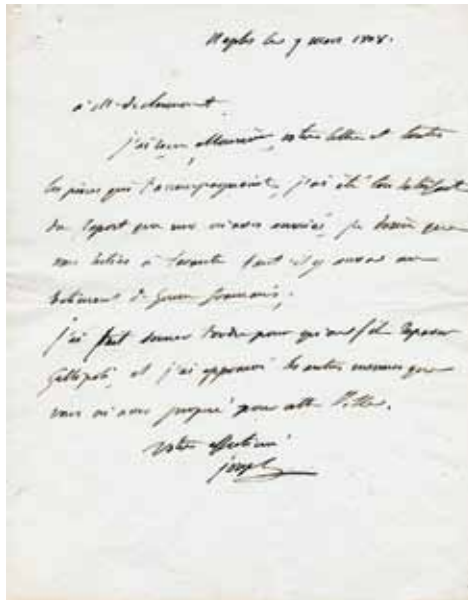 Naples le 9 mars 1808.
à M. de
j'ai reçu, Monsieur, votre lettre et toutes
les pièces qui l'accompagnaient, j'ai été
du raport que vous m'avez envoyé, je désire que
vous à tarente tant qu'il y aura un
batiment de guerre français;
j'ai fait donner l'ordre pour qu'on fit reparer
Gallipoli, et j'ai approuvé les autres mesures que
vous m'avez proposé pour cette Ville.
votre affectioné
joseph